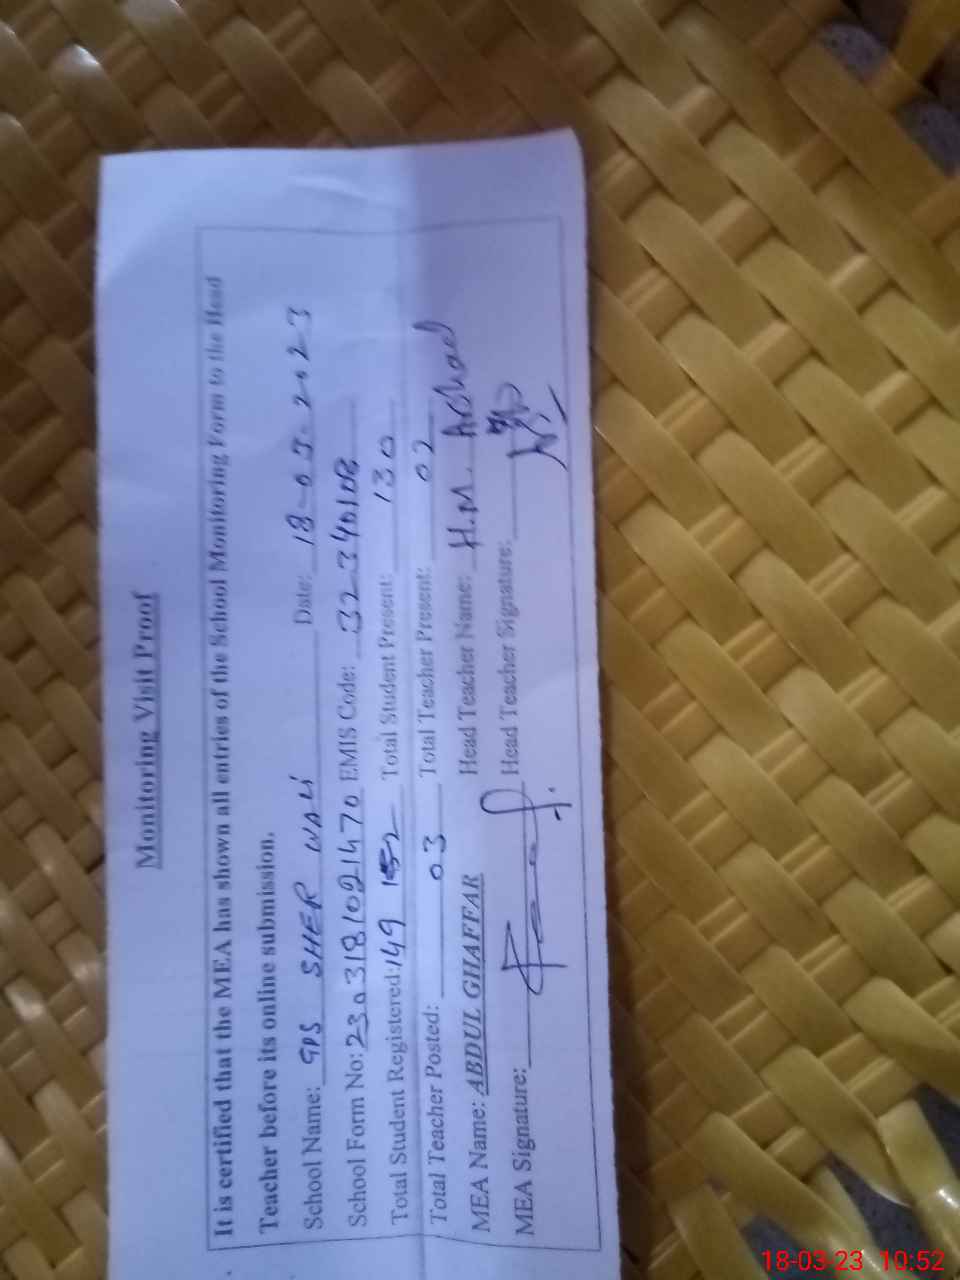 Monitoring Visit Proof
It is certified that the MEA has shown all entries of the School Monitoring Form to the Head
Teacher before its online submission.
School Name: GPS SHER WALI Date: 18-03-2023
School Form No: 2303181021470 EMIS Code: 32340108
Total Student Registered: 149 Total Student Present: 130
Total Teacher Posted: 03 Total Teacher Present: 02
MEA Name: ABDUL GHAFFAR Head Teacher Name: H.M.
MEA Signature: Head Teacher Signature:
18-03-23 10:52